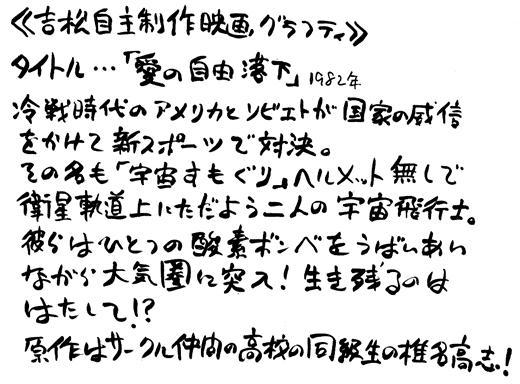 《吉松自主制作映画グラフティ》
タイトル…「愛の自由落下」1982年
冷戦時代のアメリカとソビエトが国家の威信
をかけて新スポーツで対決。
その名も「宇宙すもぐり」ヘルメット無しで
衛星軌道上にただよう二人の宇宙飛行士。
彼らはひとつの酸素ボンベをうばいあい
ながら大気圏に突入!生き残るのは
はたして!?
原作はサークル仲間の高校の同級生の椎名高志!